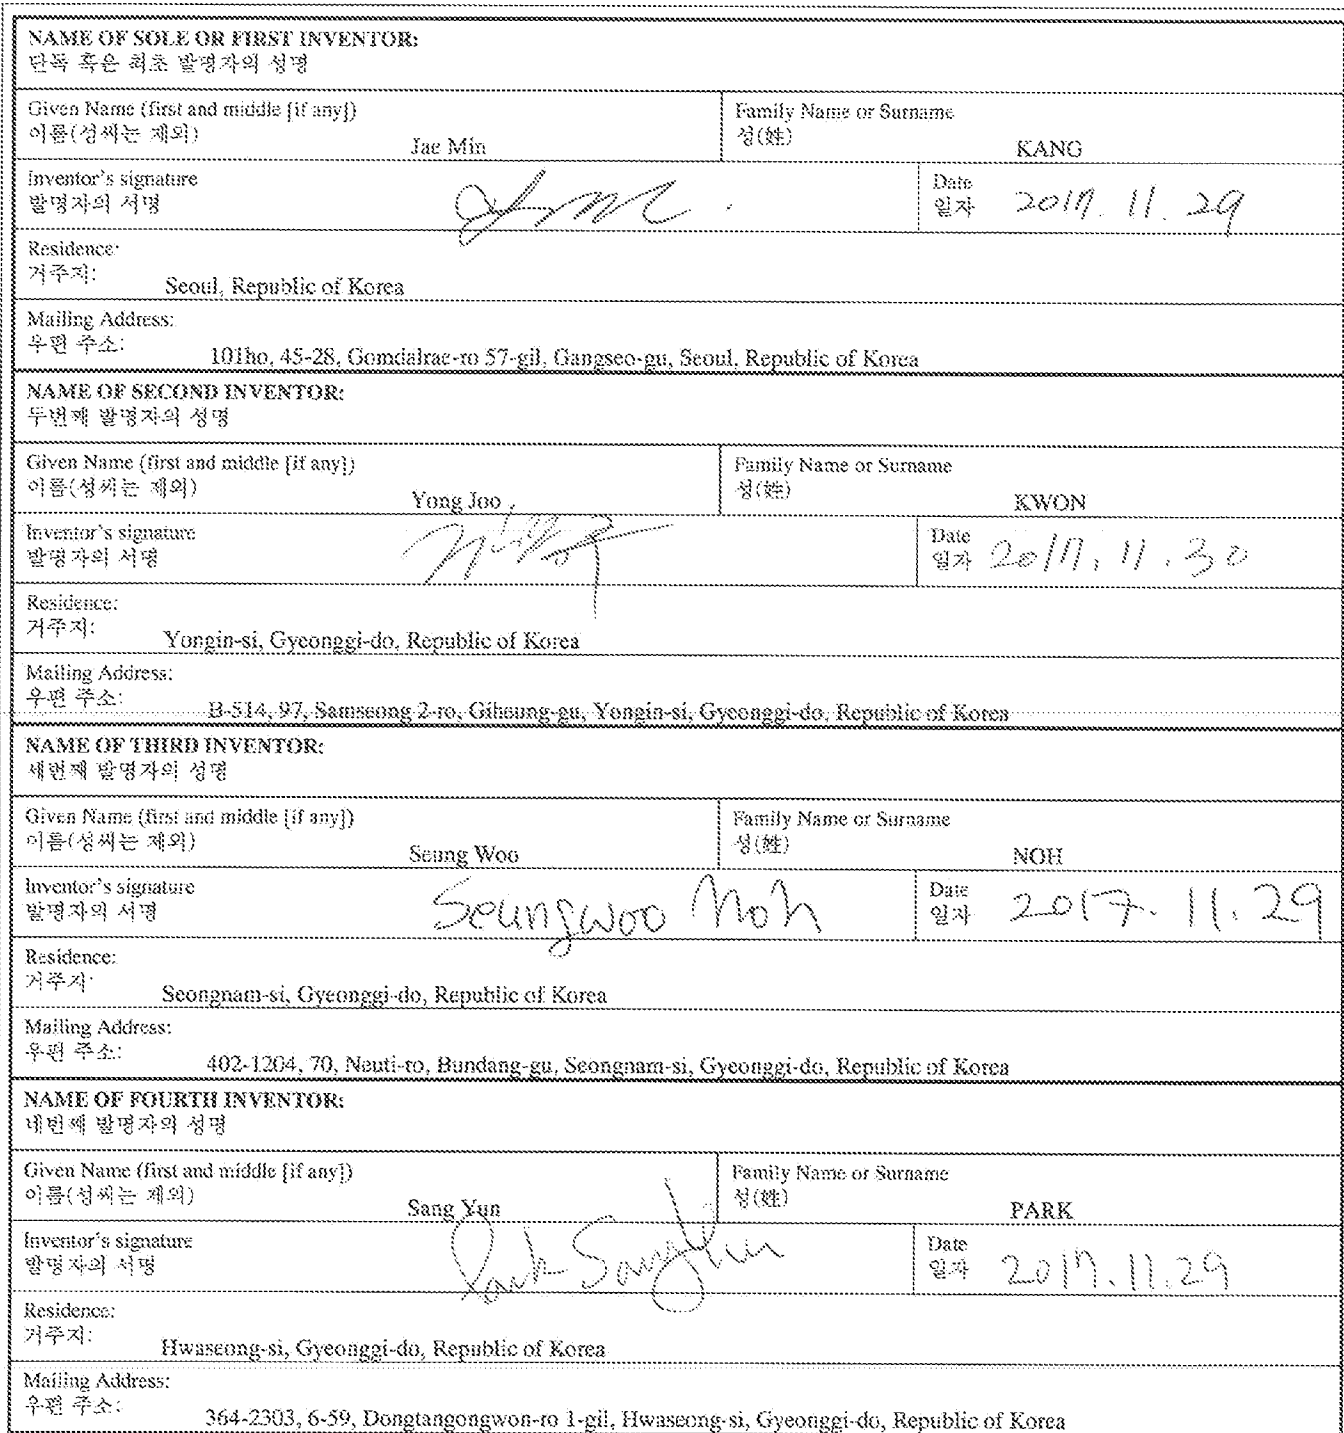 NAME OF SOLE OR FIRST INVENTOR:
단독 혹은 최초 발명자의 성명
Given Name (first and middle [if any])
이름(성씨는 제외)
Jae Min
Family Name or Surname
성(姓)
KANG
Inventor's signature
발명자의 서명
Date
일자 2017. 11. 29
Residence:
거주지:
Seoul, Republic of Korea
Mailing Address:
우편 주소:
101ho, 45-28, Gomdalrae-ro 57-gil, Gangseo-gu, Seoul, Republic of Korea
NAME OF SECOND INVENTOR:
두번째 발명자의 성명
Given Name (first and middle [if any])
이름(성씨는 제외)
Yong Joo
Family Name or Surname
성(姓)
KWON
Inventor's signature
발명자의 서명
Date
일자 2017. 11. 30
Residence:
거주지:
Yongin-si, Gyeonggi-do, Republic of Korea
Mailing Address:
우편 주소:
B-514, 97, Samseong 2-ro, Giheung-gu, Yongin-si, Gyeonggi-do, Republic of Korea
NAME OF THIRD INVENTOR:
세번째 발명자의 성명
Given Name (first and middle [if any])
이름(성씨는 제외)
Seung Woo
Family Name or Surname
성(姓)
NOH
Inventor's signature
발명자의 서명
Seungwoo Noh
Date
일자 2017. 11. 29
Residence:
거주지:
Seongnam-si, Gyeonggi-do, Republic of Korea
Mailing Address:
우편 주소:
402-1204, 70, Neuti-ro, Bundang-gu, Seongnam-si, Gyeonggi-do, Republic of Korea
NAME OF FOURTH INVENTOR:
네번째 발명자의 성명
Given Name (first and middle [if any])
이름(성씨는 제외)
Sang Yun
Family Name or Surname
성(姓)
PARK
Inventor's signature
발명자의 서명
Park Sang Yun
Date
일자 2017. 11. 29
Residence:
거주지:
Hwaseong-si, Gyeonggi-do, Republic of Korea
Mailing Address:
우편 주소:
364-2303, 6-59, Dongtangongwon-ro 1-gil, Hwaseong-si, Gyeonggi-do, Republic of Korea